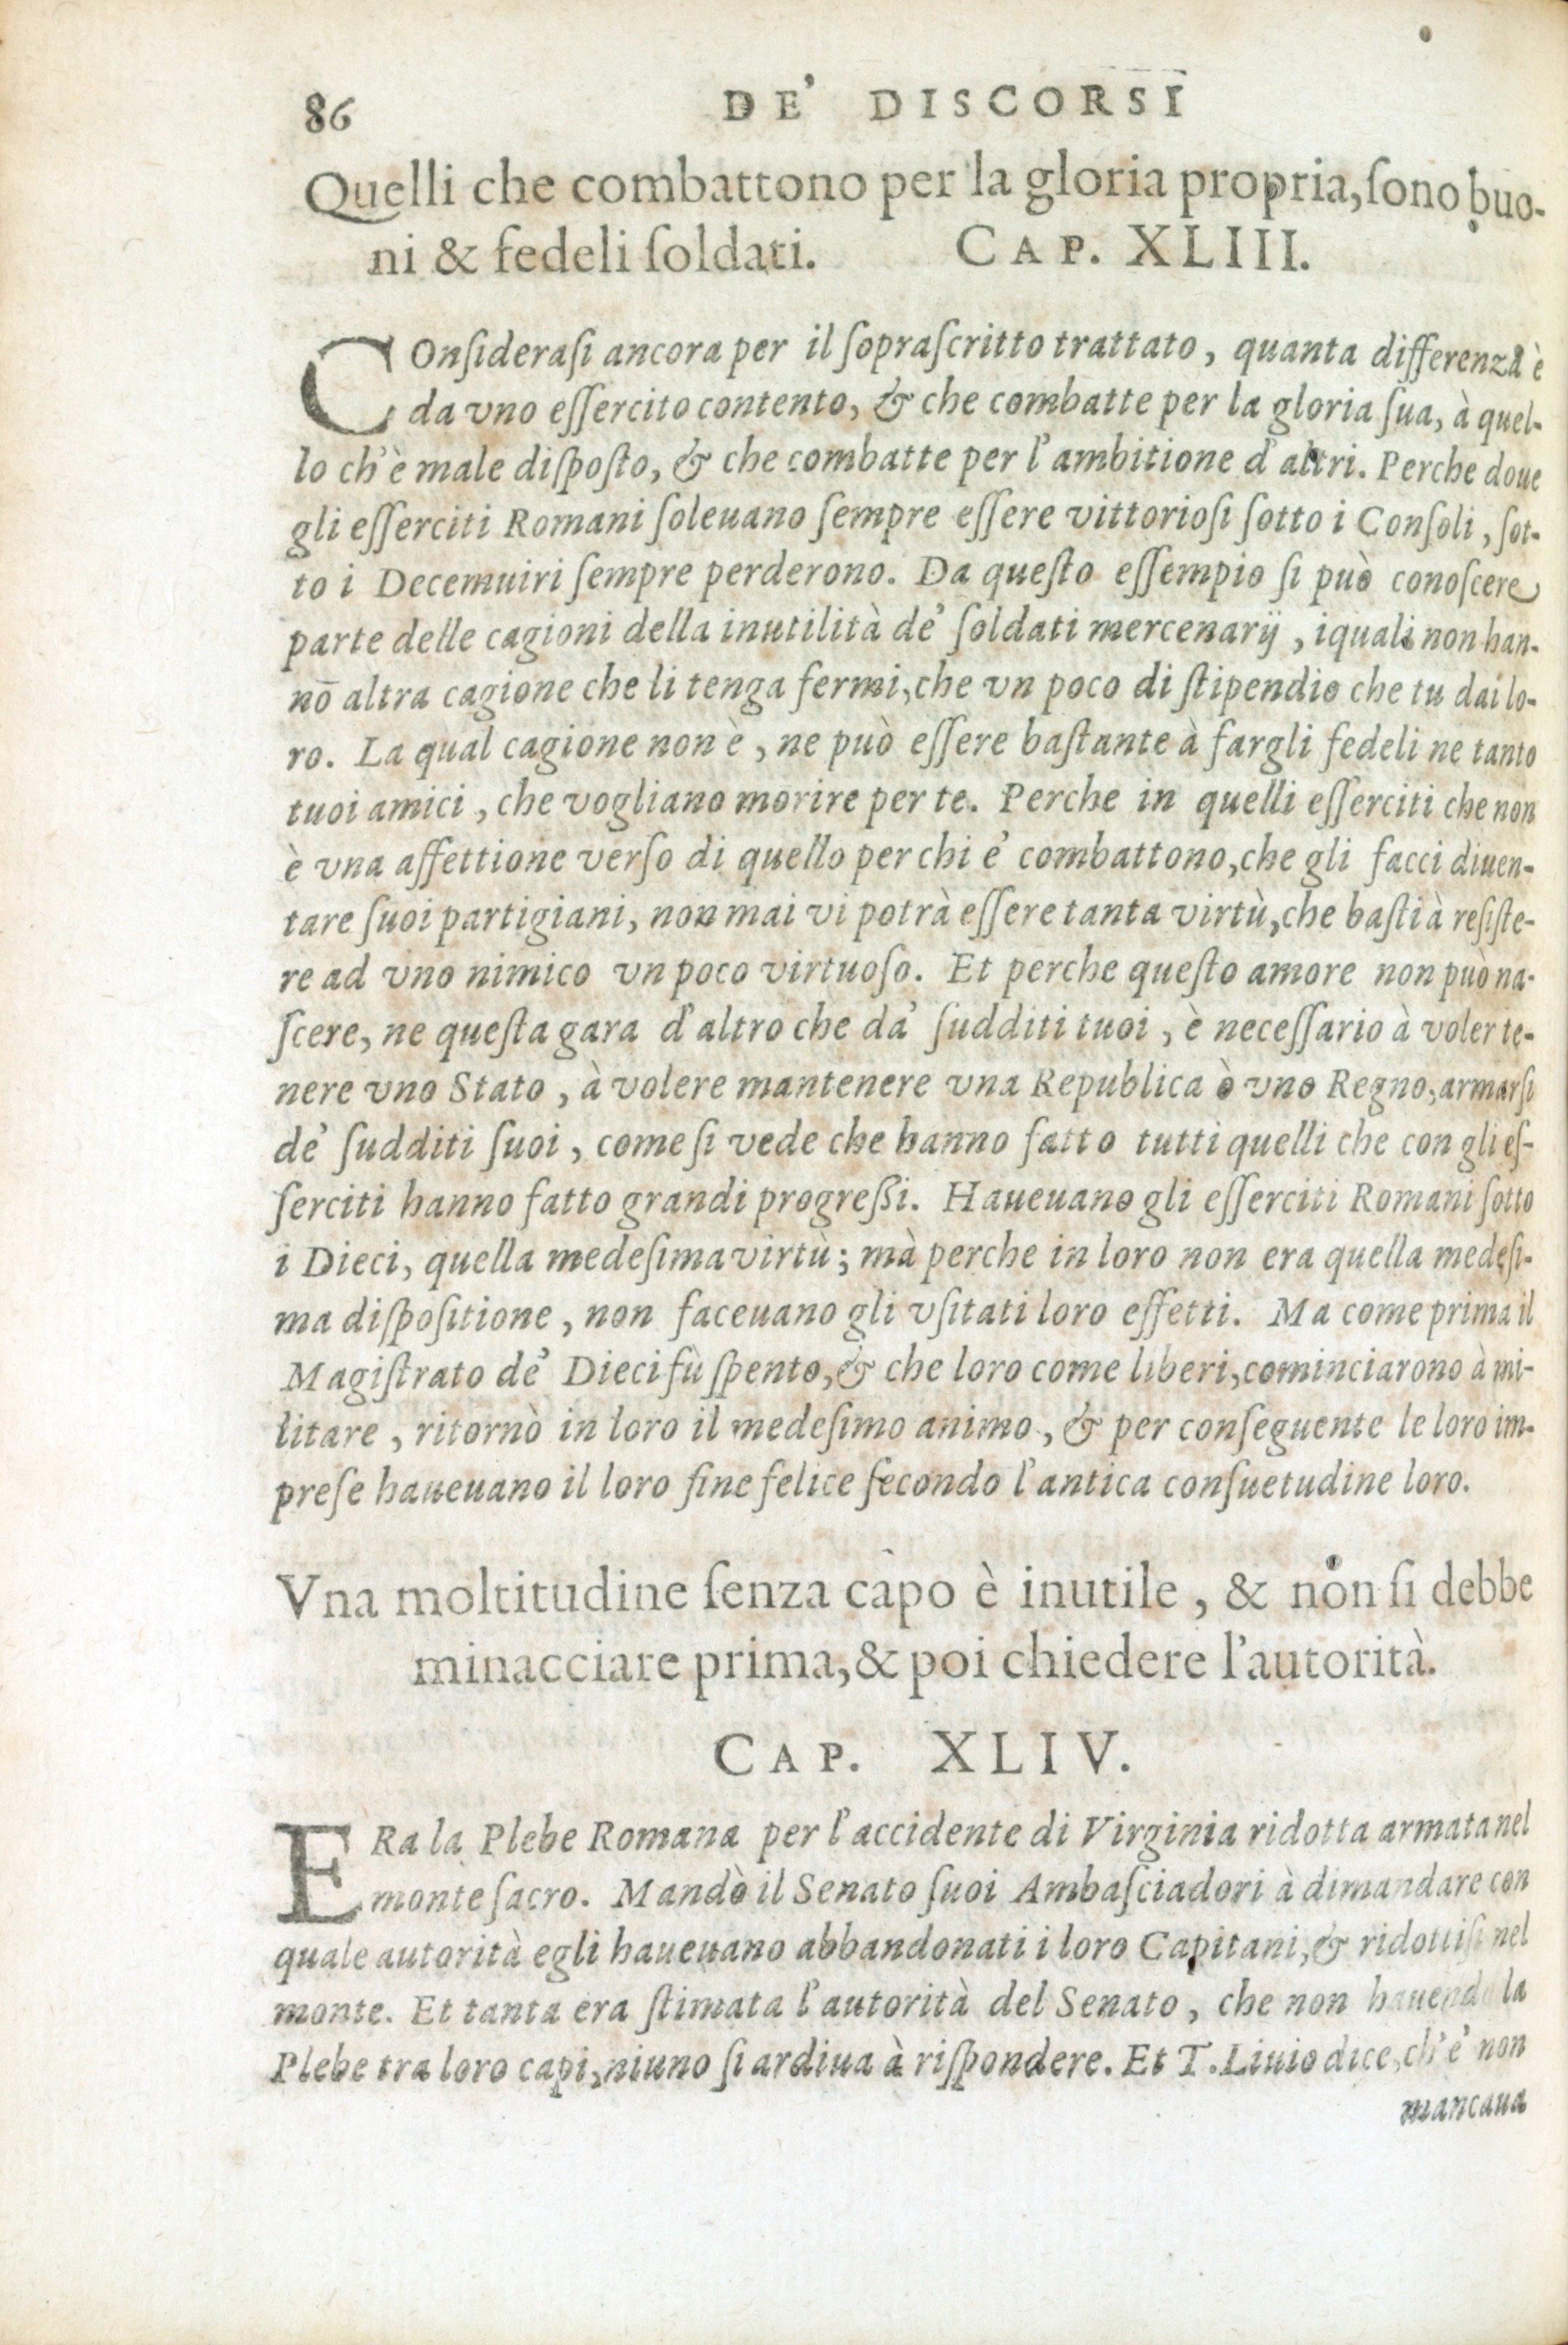 86 DE' DISCORSI
Quelli che combattono per la gloria propria, ſono buo-
ni & fedeli ſoldati. CAP. XLIII.
COnſideraſi ancora per il ſopraſcritto trattato, quanta differenza è
da vno eſſercito contento, & che combatte per la gloria ſua, à quel-
lo ch'è male diſpoſto, & che combatte per l'ambitione d'altri. Perche doue
gli eſſerciti Romani ſoleuano ſempre eſſere vittorioſi ſotto i Conſoli, ſot-
to i Decemuiri ſempre perderono. Da queſto eſſempio ſi può conoſcere
parte delle cagioni della inutilità de' ſoldati mercenarij, iquali non han-
nō altra cagione che li tenga fermi, che vn poco di ſtipendio che tu dai lo-
ro. La qual cagione non è, ne può eſſere baſtante à fargli fedeli ne tanto
tuoi amici, che vogliano morire per te. Perche in quelli eſſerciti che non
è vna affettione verſo di quello per chi e' combattono, che gli facci diuen-
tare ſuoi partigiani, non mai vi potrà eſſere tanta virtù, che baſti à reſiſte-
re ad vno nimico vn poco virtuoſo. Et perche queſto amore non può na-
ſcere, ne queſta gara d'altro che da' ſudditi tuoi, è neceſſario à voler te-
nere vno Stato, à volere mantenere vna Republica ò vno Regno, armarſi
de' ſudditi ſuoi, come ſi vede che hanno fatto tutti quelli che con gli eſ-
ſerciti hanno fatto grandi progreßi. Haueuano gli eſſerciti Romani ſotto
i Dieci, quella medeſima virtù; mà perche in loro non era quella medeſi-
ma diſpoſitione, non faceuano gli vſitati loro effetti. Ma come prima il
Magiſtrato de' Dieci fù ſpento, & che loro come liberi, cominciarono à mi-
litare, ritornò in loro il medeſimo animo, & per conſeguente le loro im-
preſe haueuano il loro fine felice ſecondo l'antica conſuetudine loro.
Vna moltitudine ſenza capo è inutile, & non ſi debbe
minacciare prima, & poi chiedere l'autorità.
CAP. XLIV.
ERa la Plebe Romana per l'accidente di Virginia ridotta armata nel
monte ſacro. Mandò il Senato ſuoi Ambaſciadori à dimandare con
quale autorità egli haueuano abbandonati i loro Capitani, & ridottiſi nel
monte. Et tanta era ſtimata l'autorità del Senato, che non hauendo la
Plebe tra loro capi, niuno ſi ardiua à riſpondere. Et T. Liuio dice, ch'e' non
mancaua